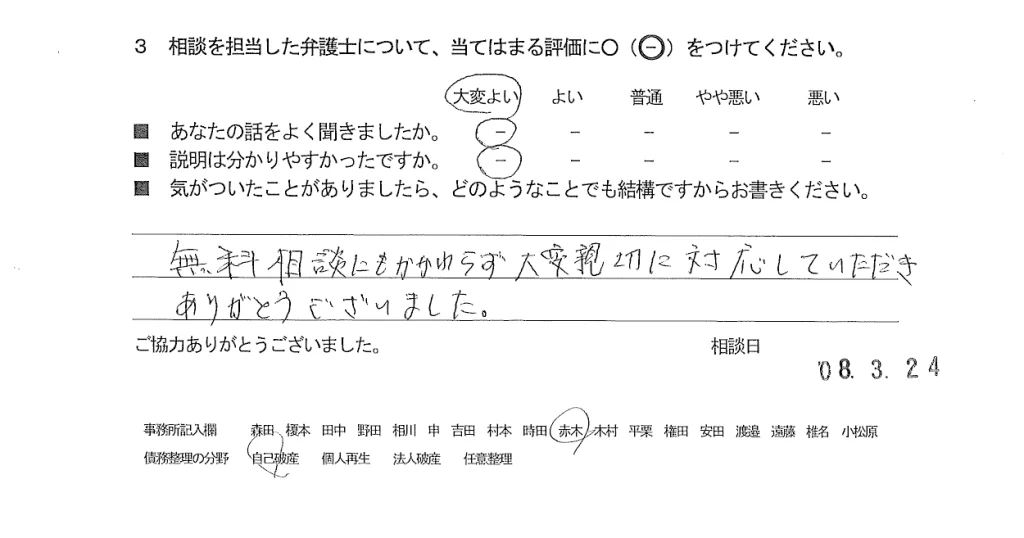 3 相談を担当した弁護士について、当てはまる評価に○（㊀）をつけてください。
大変よい よい 普通 やや悪い 悪い
■ あなたの話をよく聞きましたか。 － － － － －
■ 説明は分かりやすかったですか。 － － － － －
■ 気がついたことがありましたら、どのようなことでも結構ですからお書きください。
無料相談にもかかわらず大変親切に対応していただき
ありがとうございました。
ご協力ありがとうございました。 相談日
'08. 3. 24
事務所記入欄 森田 榎本 田中 野田 相川 申 吉田 村本 時田 赤木 木村 平栗 権田 安田 渡邉 遠藤 椎名 小松原
債務整理の分野 自己破産 個人再生 法人破産 任意整理